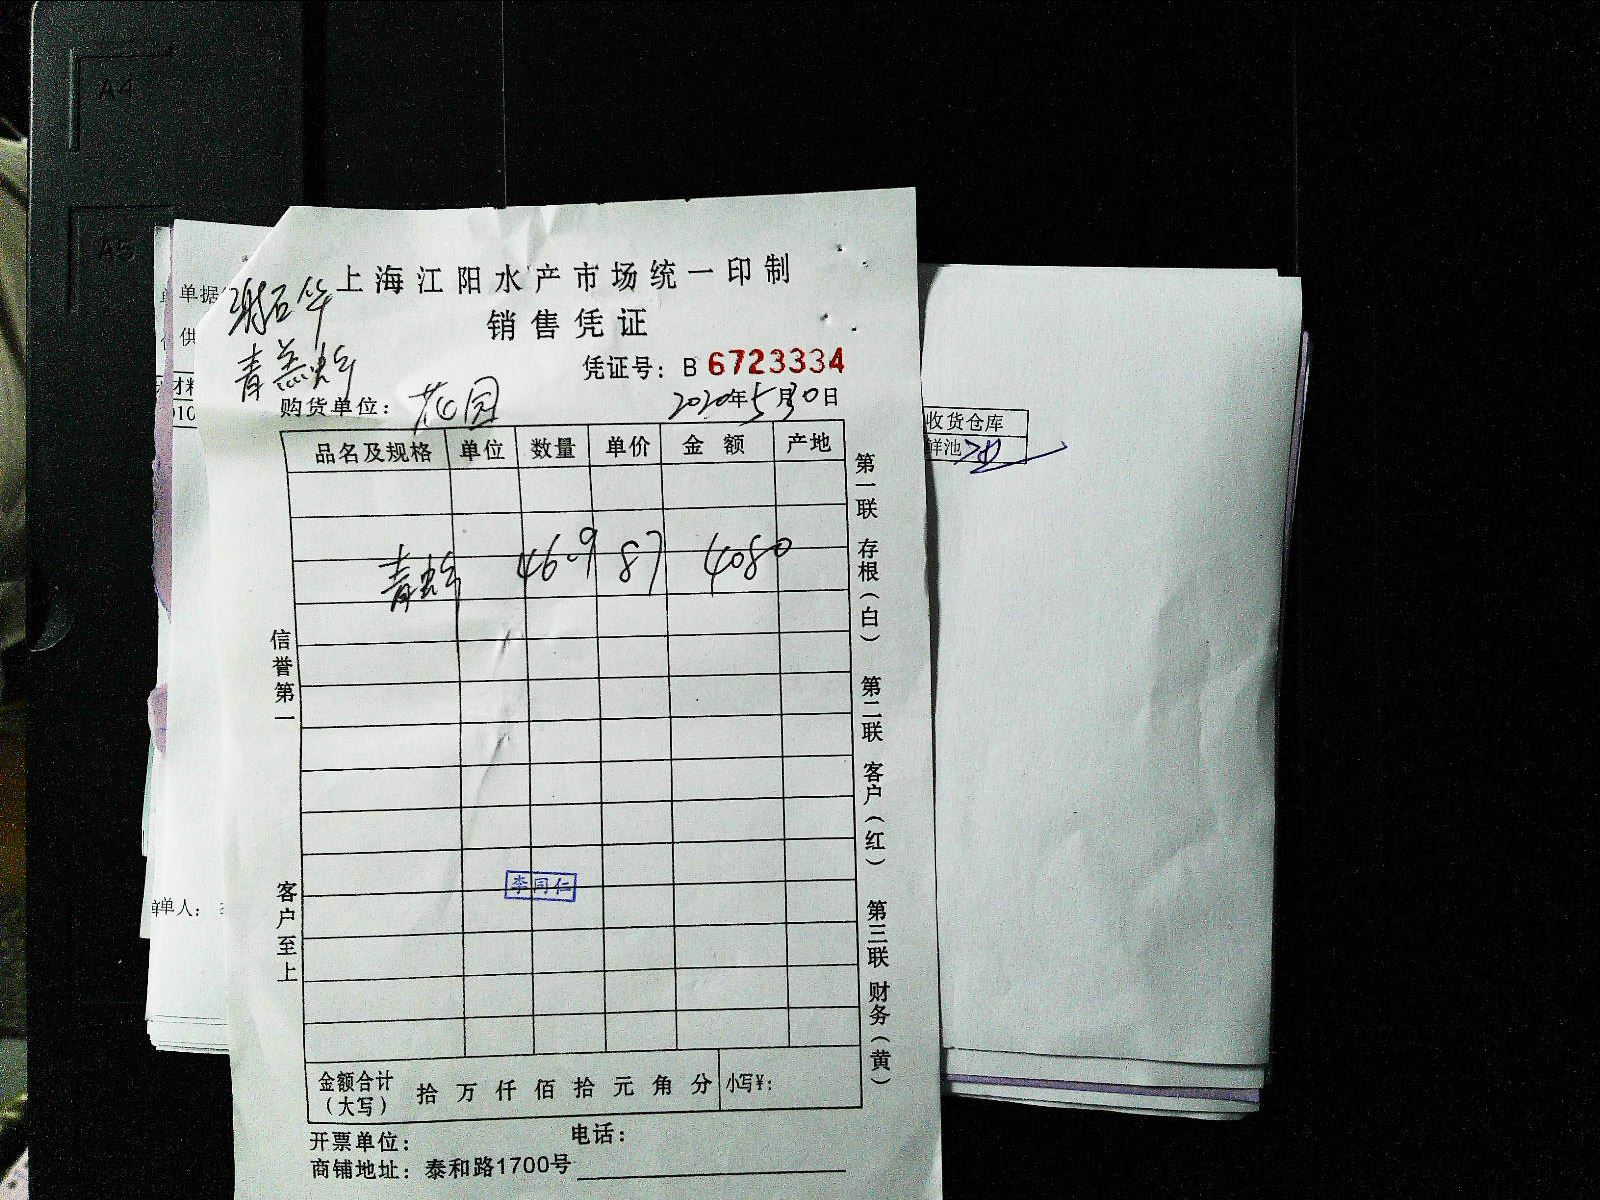 A4
A5
上海江阳水产市场统一印制
销售凭证
谢石华
青羔蟹
凭证号：B 6723334
购货单位：花园
2020年5月30日
品名及规格 单位 数量 单价 金额 产地
青蟹 46.9 87 4080
信誉第一
客户至上
第一联 存根（白）
第二联 客户（红）
第三联 财务（黄）
李同仁
金额合计（大写） 拾万仟佰拾元角分 小写¥：
开票单位： 电话：
商铺地址：泰和路1700号
单据
供
材料
单人：
收货仓库
鲜池